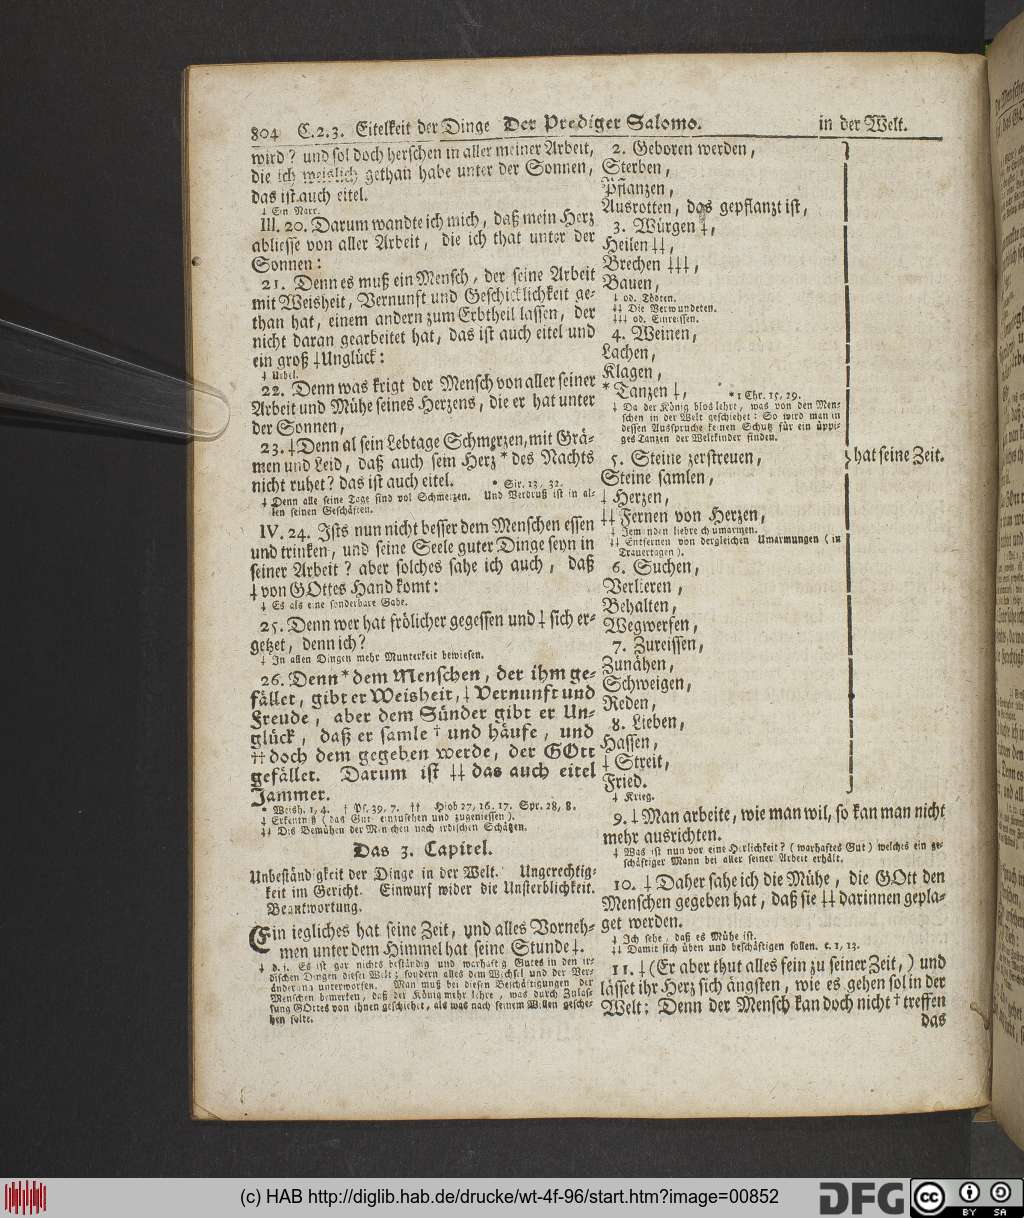 804 C.2.3. Eitelkeit der Dinge Der Prediger Salomo. in der Welt.
wird? und sol doch herschen in aller meiner Arbeit,
die ich weislich gethan habe unter der Sonnen,
das ist auch eitel.
‡ Ein Narr.
III. 20. Darum wandte ich mich, daß mein Herz
abliesse von aller Arbeit, die ich that unter der
Sonnen:
21. Denn es muß ein Mensch, der seine Arbeit
mit Weisheit, Vernunft und Geschicklichkeit ge-
than hat, einem andern zum Erbtheil lassen, der
nicht daran gearbeitet hat, das ist auch eitel und
ein groß ‡ Unglück:
‡ Uebel.
22. Denn was krigt der Mensch von aller seiner
Arbeit und Mühe seines Herzens, die er hat unter
der Sonnen,
23. ‡ Denn al sein Lebtage Schmerzen, mit Grä-
men und Leid, daß auch sein Herz * des Nachts
nicht ruhet? das ist auch eitel. * Sir. 13, 32.
‡ Denn alle seine Tage sind vol Schmerzen. Und Verdruß ist in al-
len seinen Geschäften.
IV. 24. Ists nun nicht besser dem Menschen essen
und trinken, und seine Seele guter Dinge seyn in
seiner Arbeit? aber solches sahe ich auch, daß
‡ von GOttes Hand komt:
‡ Es als eine sonderbare Gabe.
25. Denn wer hat frölicher gegessen und ‡ sich er-
getzet, denn ich?
‡ In allen Dingen mehr Munterkeit bewiesen.
26. Denn * dem Menschen, der ihm ge-
fället, gibt er Weisheit, ‡ Vernunft und
Freude, aber dem Sünder gibt er Un-
glück, daß er samle † und häufe, und
†† doch dem gegeben werde, der GOtt
gefället. Darum ist ‡‡ das auch eitel
Jammer.
* Weish. 1, 4. † Ps. 39, 7. †† Hiob 27, 16. 17. Spr. 28, 8.
‡ Erkentniß (das Gute einzusehen und zugeniessen).
‡‡ Dis Bemühen der Menschen nach irdischen Schätzen.
Das 3. Capitel.
Unbeständigkeit der Dinge in der Welt. Ungerechtig-
keit im Gericht. Einwurf wider die Unsterblichkeit.
Beantwortung.
Ein iegliches hat seine Zeit, und alles Vorneh-
men unter dem Himmel hat seine Stunde ‡.
‡ d. i. Es ist gar nichts beständig und warhaftig Gutes in den ir-
dischen Dingen dieser Welt; sondern alles dem Wechsel und der Ver-
änderung unterworfen. Man muß bei diesen Beschäftigungen der
Menschen bemerken, daß der König mehr lehre, was durch Zulas-
sung GOttes von ihnen geschiehet, als was nach seinem Willen gesche-
hen solte.
2. Geboren werden,
Sterben,
Pflanzen,
Ausrotten, das gepflanzt ist,
3. Würgen ‡,
Heilen ‡‡,
Brechen ‡‡‡,
Bauen,
‡ od. Tödten.
‡‡ Die Verwundeten.
‡‡‡ od. Einreissen.
4. Weinen,
Lachen,
Klagen,
* Tanzen ‡, * 1 Chr. 15, 29.
‡ Da der König blos lehrt, was von den Men-
schen in der Welt geschiehet: So wird man in
dessen Ausspruche keinen Schutz für ein üppi-
ges Tanzen der Weltkinder finden.
5. Steine zerstreuen, hat seine Zeit.
Steine samlen,
‡ Herzen,
‡‡ Fernen von Herzen,
‡ Jemanden liebreich umarmen.
‡‡ Entfernen von dergleichen Umarmungen (in
Trauertagen).
6. Suchen,
Verlieren,
Behalten,
Wegwerfen,
7. Zureissen,
Zunähen,
Schweigen,
Reden,
8. Lieben,
Hassen,
‡ Streit,
Fried.
‡ Krieg.
9. ‡ Man arbeite, wie man wil, so kan man nicht
mehr ausrichten.
‡ Was ist nun vor eine Herlichkeit? (warhaftes Gut) welches ein ge-
schäftiger Mann bei aller seiner Arbeit erhält.
10. ‡ Daher sahe ich die Mühe, die GOtt den
Menschen gegeben hat, daß sie ‡‡ darinnen gepla-
get werden.
‡ Ich sehe, daß es Mühe ist.
‡‡ Damit sich üben und beschäftigen sollen. c. 1, 13.
11. ‡ (Er aber thut alles fein zu seiner Zeit,) und
lässet ihr Herz sich ängsten, wie es gehen sol in der
Welt: Denn der Mensch kan doch nicht † treffen
das
(c) HAB http://diglib.hab.de/drucke/wt-4f-96/start.htm?image=00852
DFG
cc
BY SA